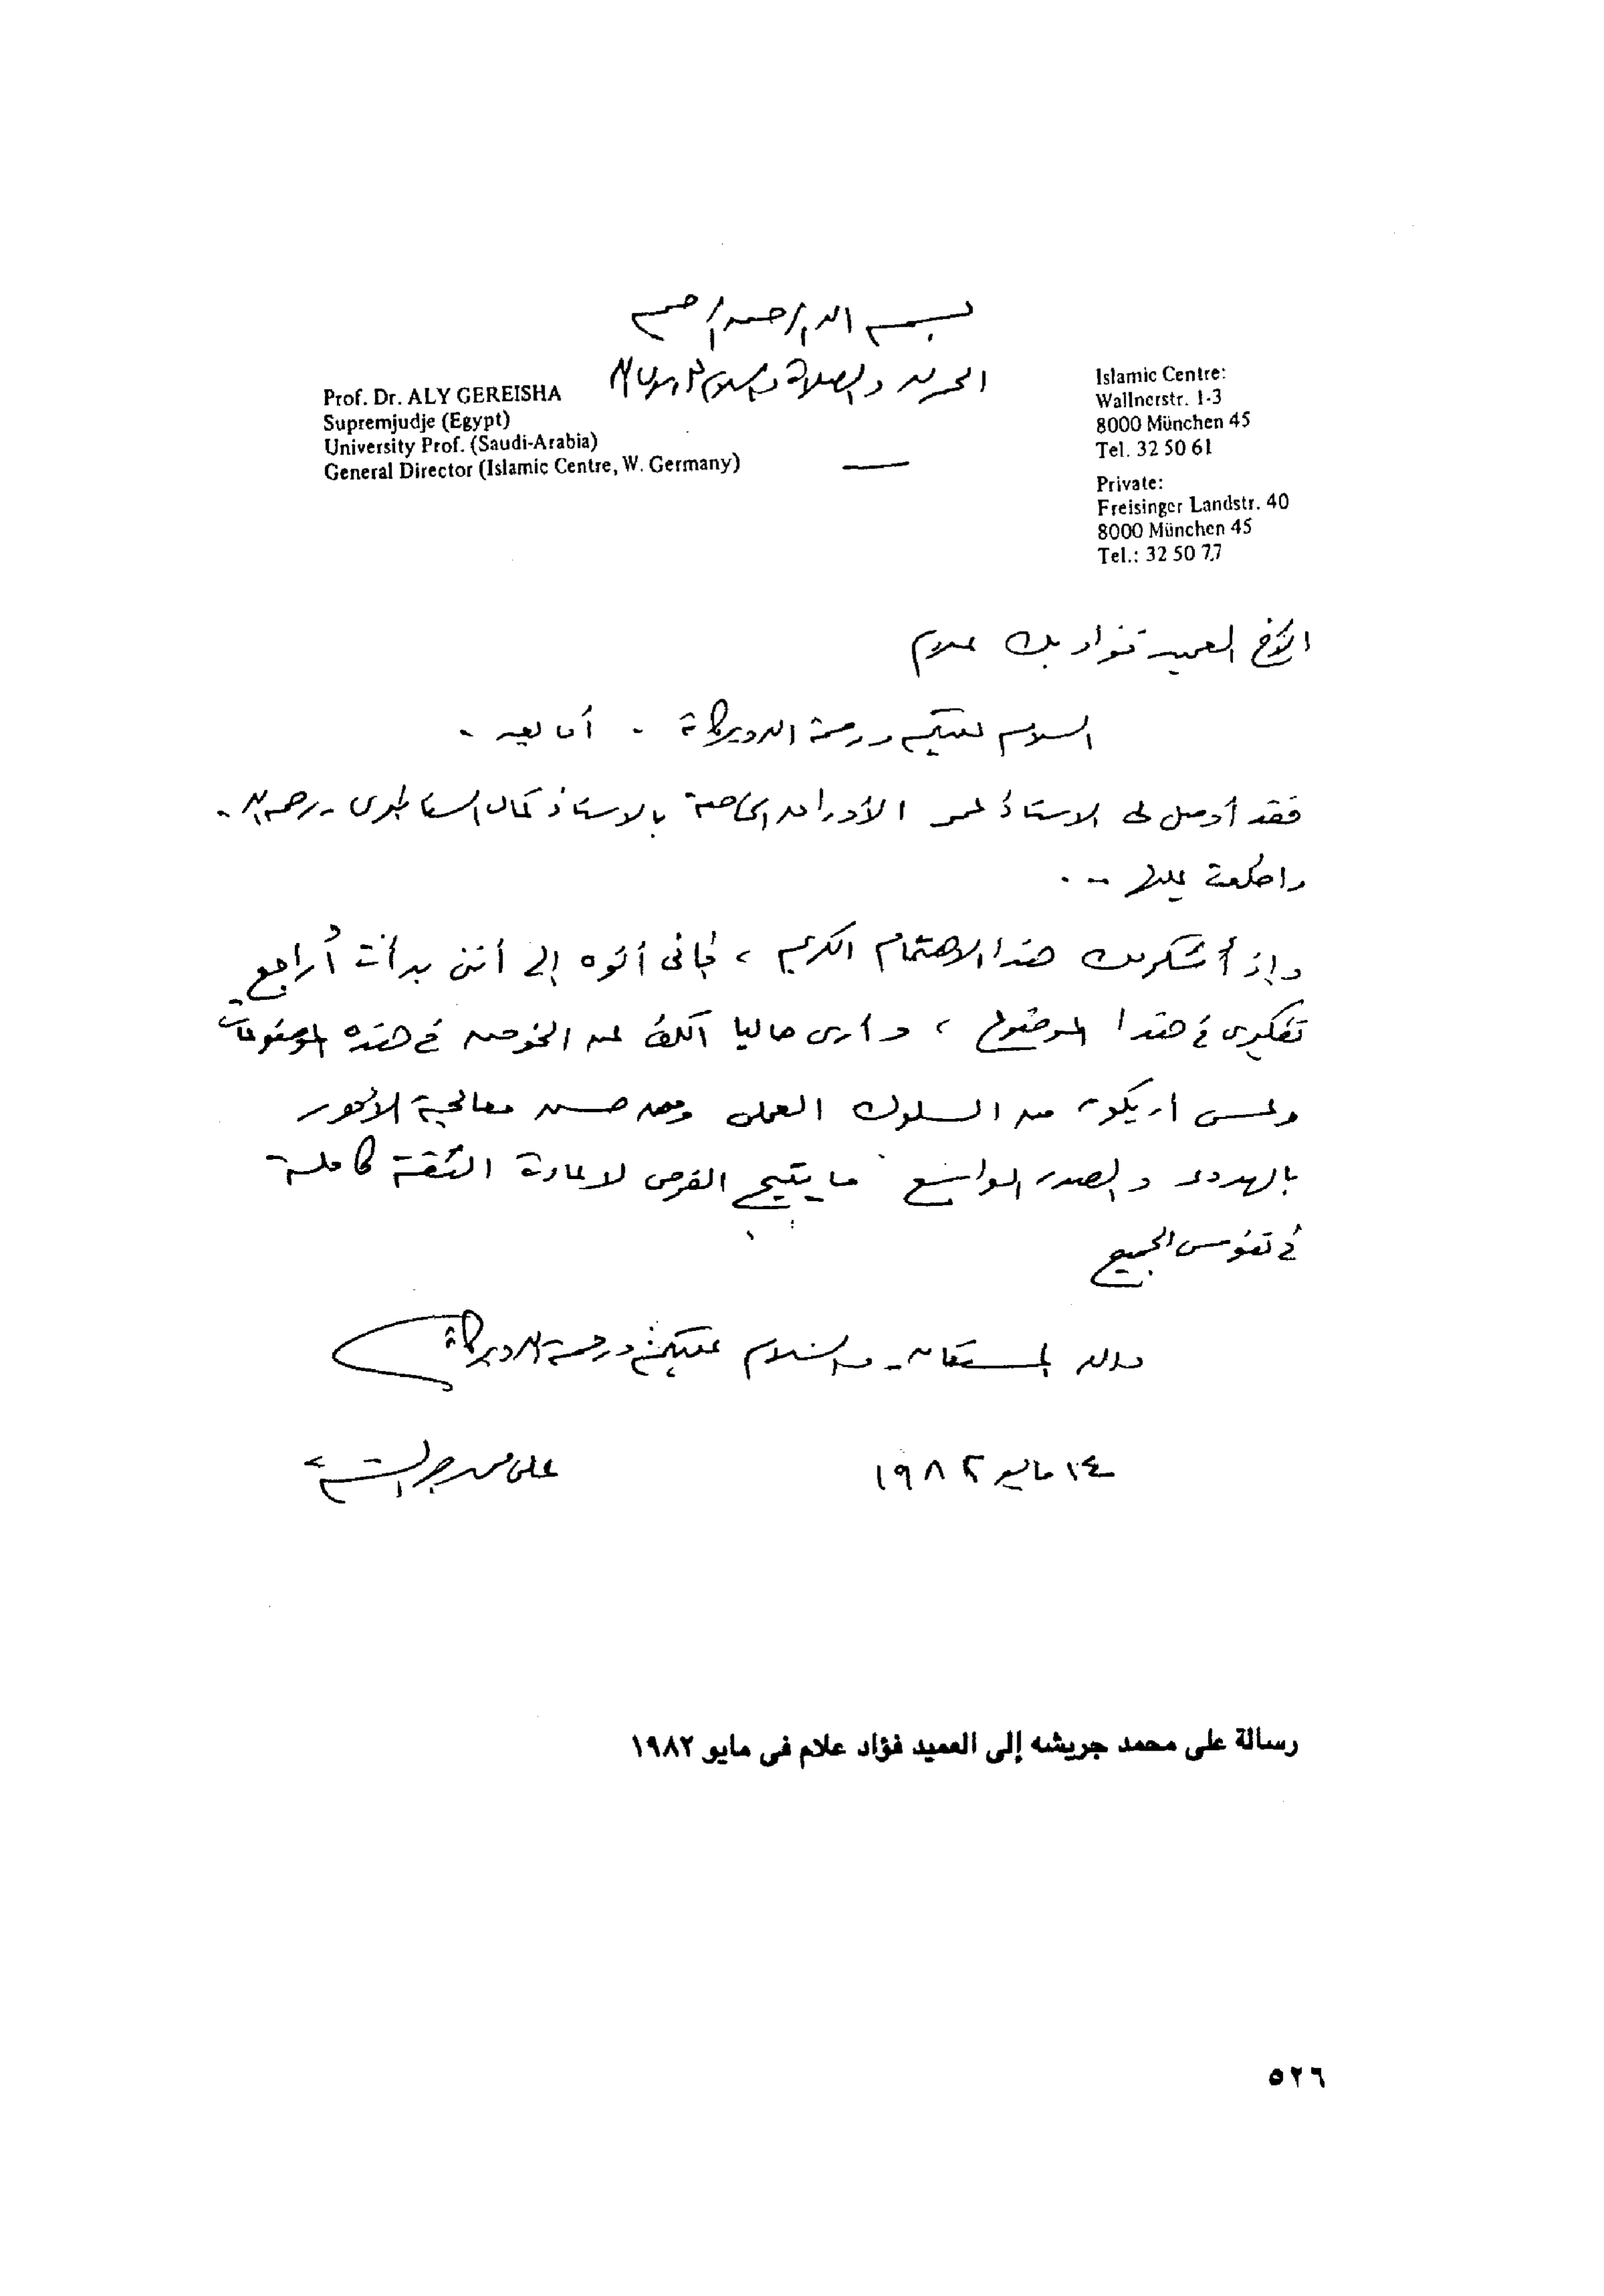 بسم الله الرحمن الرحيم
الحمد لله والصلاة والسلام على رسول الله
Prof. Dr. ALY GEREISHA
Supremjudje (Egypt)
University Prof. (Saudi-Arabia)
General Director (Islamic Centre, W. Germany)
Islamic Centre:
Wallnerstr. 1-3
8000 München 45
Tel. 32 50 61
Private:
Freisinger Landstr. 40
8000 München 45
Tel.: 32 50 77
الأخ العميد فؤاد بك علام
السلام عليكم ورحمة الله وبركاته . أما بعد .
فقد أوصل لى الاستاذ عمر الأوراق الخاصة بالاستاذ كمال السنانيرى - رحمه الله -
واطلعت عليها ..
وإذ أشكر لك هذا الاهتمام الكريم ، فإنى أنوه إلى أننى بدأت أراجع
تفكيرى فى هذا الموضوع ، وأرى حاليا الكف عن الخوض فى هذه الموضوعات
وعسى أن يكون من السلوك العملى ومن حسن معالجة الأمور
بالهدوء والصدر الواسع ما يتيح الفرص لإعادة الثقة كاملة
فى نفوس الجميع
والله المستعان - والسلام عليكم ورحمة الله وبركاته
١٤ مايو ١٩٨٢
على محمد جريشه
رسالة على محمد جريشه إلى العميد فؤاد علام فى مايو ١٩٨٢
٥٢٦